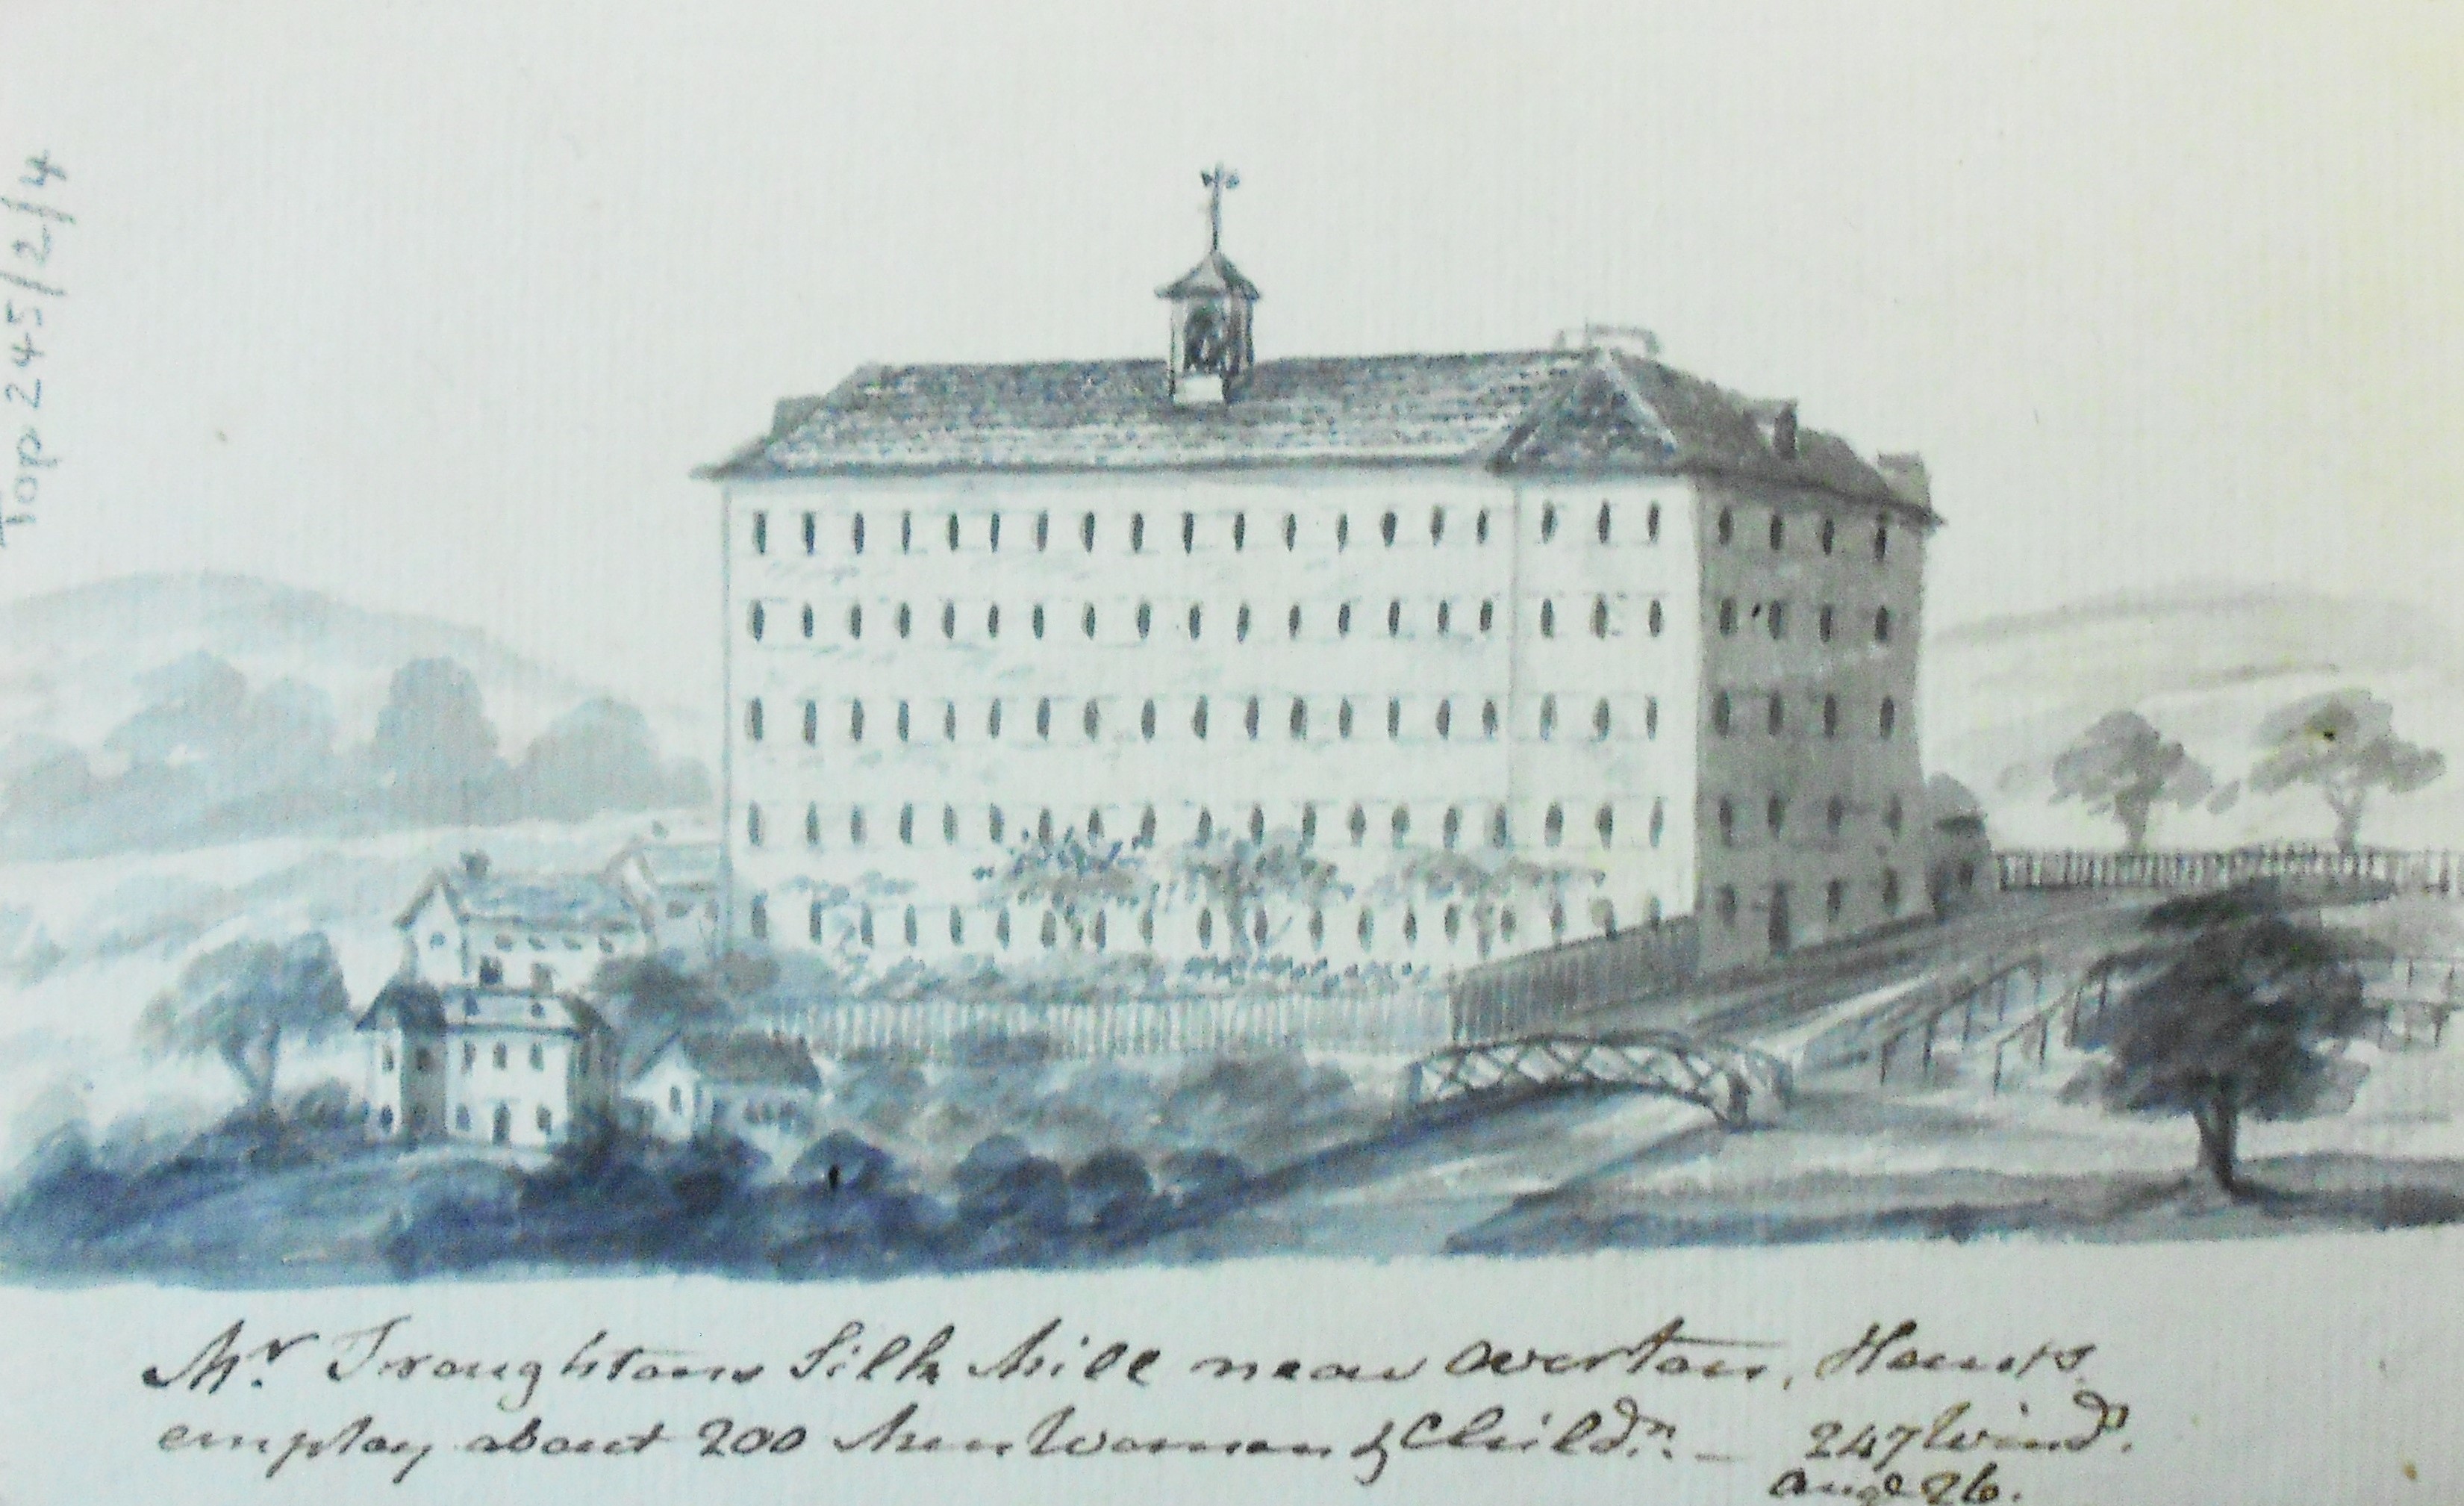 Top 245/2/4
Mr. Troughtons Silk Mill near Overton, Hants.
employ about 200 Men Women & Childn. — 247 Winds.
Aug 26.